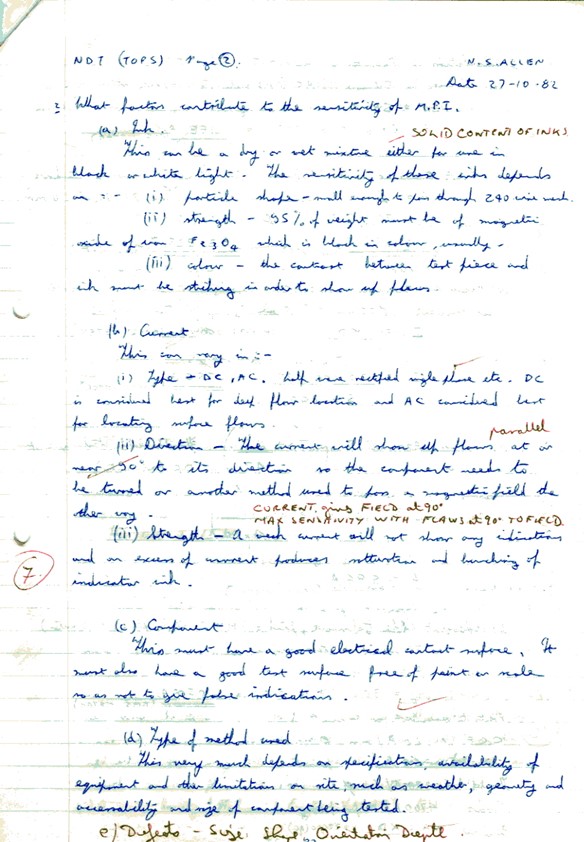 NDT (TOPS) Page ②. N.S. ALLEN
Date 27-10-82
2 What factors contribute to the sensitivity of M.P.I.
(a) Ink. SOLID CONTENT OF INKS
This can be a dry or wet mixture either for use in
black or white light. The sensitivity of these inks depends
on :- (i) particle shape - small enough to pass through 240 wire mesh.
(ii) strength - 95% of weight must be of magnetic
oxide of iron Fe3O4 which is black in colour, usually.
(iii) colour - the contrast between test piece and
ink must be striking in order to show up flaws.
(b) Current
This can vary in :-
(i) Type - DC, AC. half wave rectified single phase etc. DC
is considered best for deep flaw location and AC considered best
for locating surface flaws.
parallel
(ii) Direction - The current will show up flaws at or
near 90° to its direction so the component needs to
be turned or another method used to pass a magnetic field the
other way. CURRENT gives FIELD at 90°
MAX SENSITIVITY WITH FLAWS at 90° TO FIELD
(iii) Strength - A weak current will not show any indications
and an excess of current produces saturation and bunching of
7.
indicator ink.
(c) Component
This must have a good electrical contact surface. It
must also have a good test surface free of paint or scale
so as not to give false indications.
(d) Type of method used
This very much depends on specifications, availability of
equipment and other limitations on site, such as weather, geometry and
accessability and size of component being tested.
e) Defects - Size Shape Orientation Depth